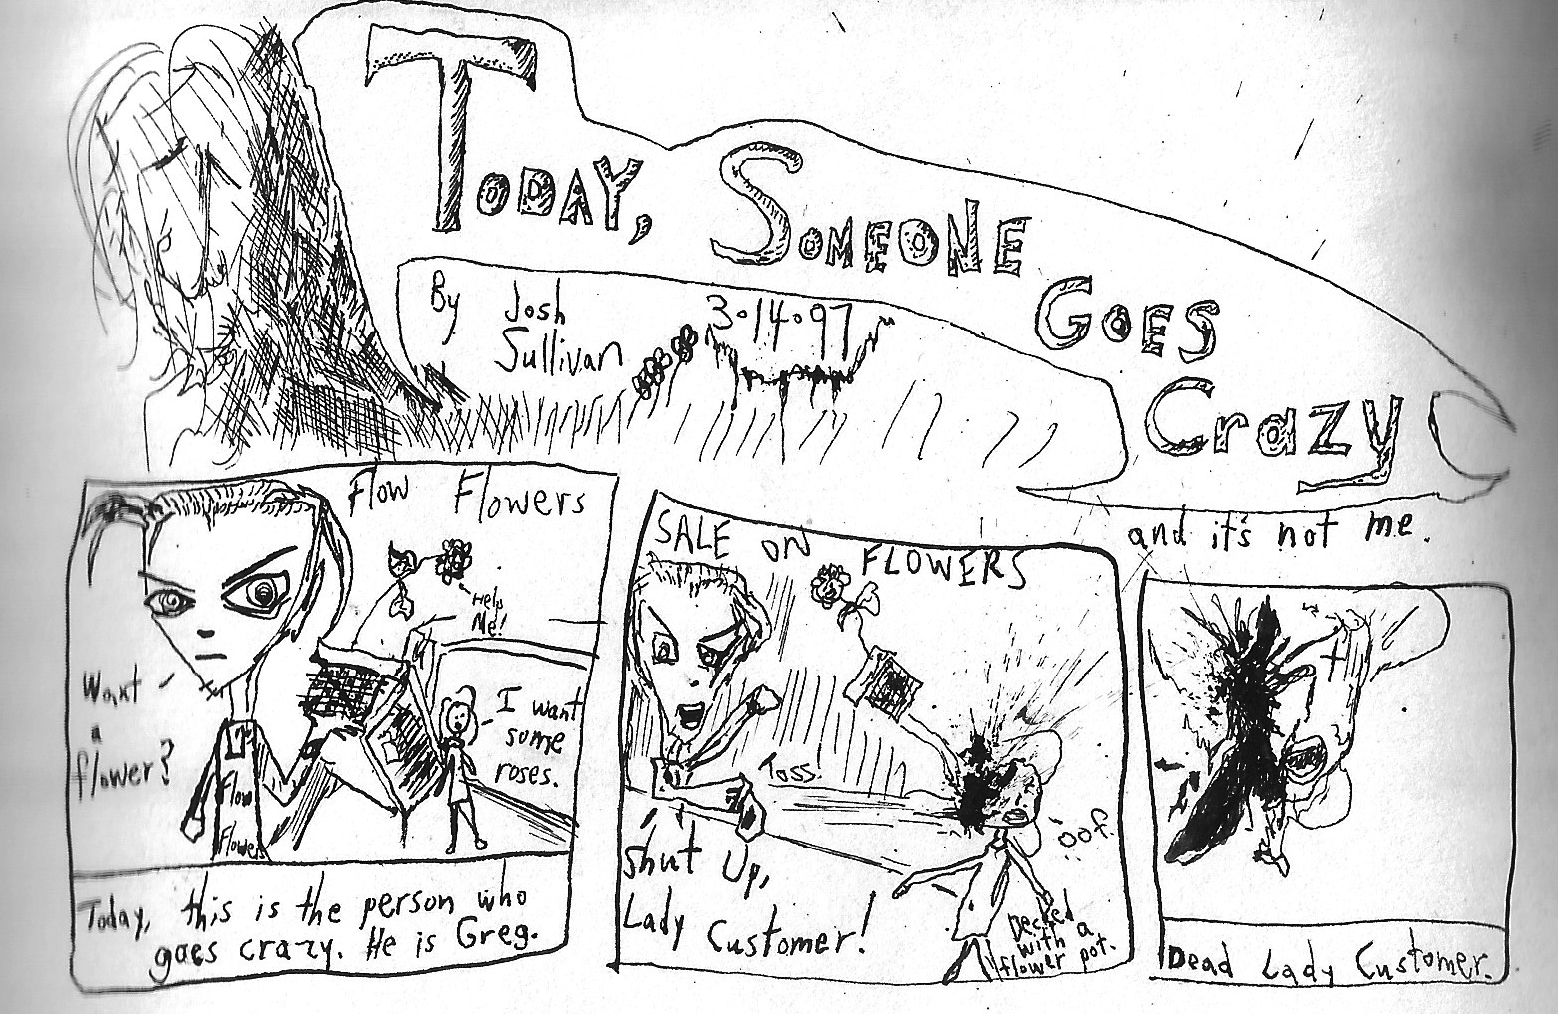 TODAY, SOMEONE
GOES
CRAZY
By Josh
Sullivan
3·14·97
and it's not me.
Flow Flowers
Help
Me!
Want
a
flower?
I want
some
roses.
Flow
Flowers
Today, this is the person who
goes crazy. He is Greg.
SALE ON FLOWERS
Toss!
oof.
Shut Up,
Lady Customer!
Decked
with a
flower pot.
Dead Lady Customer.